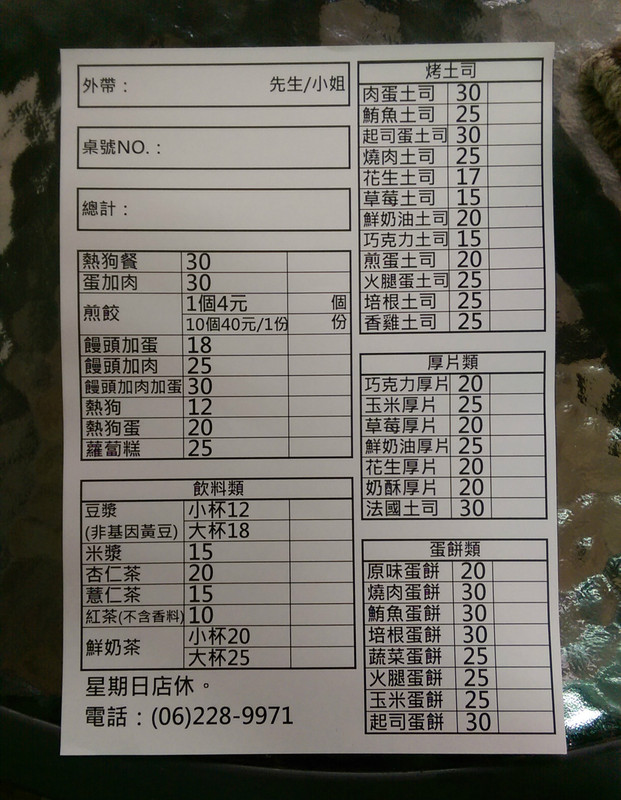 外帶： 先生/小姐
桌號NO.：
總計：
熱狗餐 30
蛋加肉 30
煎餃 1個4元 個
10個40元/1份 份
饅頭加蛋 18
饅頭加肉 25
饅頭加肉加蛋 30
熱狗 12
熱狗蛋 20
蘿蔔糕 25
飲料類
豆漿 小杯12
(非基因黃豆) 大杯18
米漿 15
杏仁茶 20
薏仁茶 15
紅茶(不含香料) 10
鮮奶茶 小杯20
大杯25
星期日店休。
電話：(06)228-9971
烤土司
肉蛋土司 30
鮪魚土司 25
起司蛋土司 30
燒肉土司 25
花生土司 17
草莓土司 15
鮮奶油土司 20
巧克力土司 15
煎蛋土司 20
火腿蛋土司 25
培根土司 25
香雞土司 25
厚片類
巧克力厚片 20
玉米厚片 25
草莓厚片 20
鮮奶油厚片 25
花生厚片 20
奶酥厚片 20
法國土司 30
蛋餅類
原味蛋餅 20
燒肉蛋餅 30
鮪魚蛋餅 30
培根蛋餅 30
蔬菜蛋餅 25
火腿蛋餅 25
玉米蛋餅 25
起司蛋餅 30